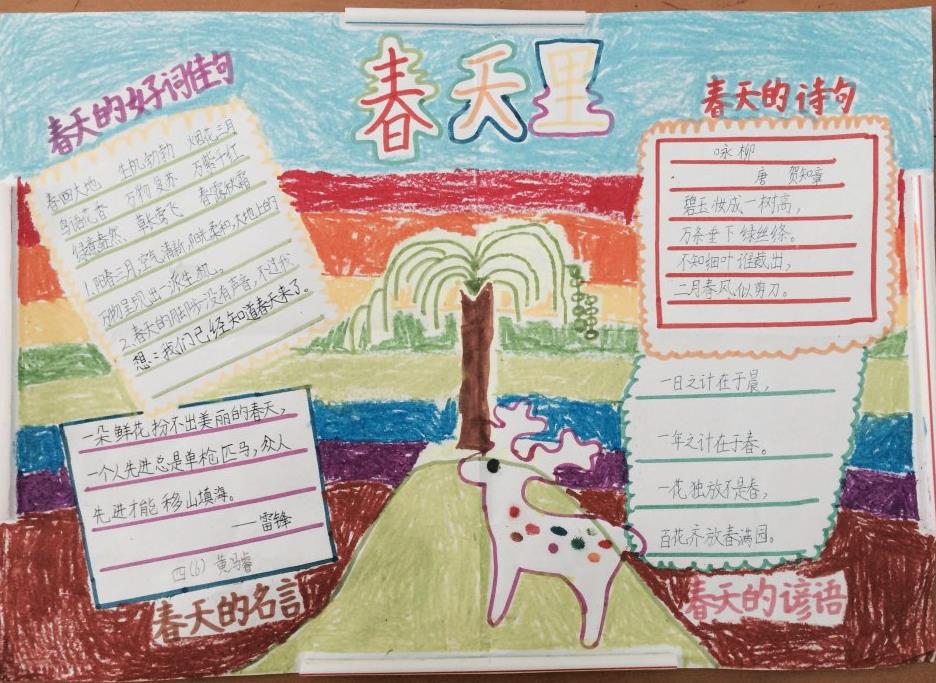 春天里
春天的好词佳句
春回大地 生机勃勃 烟花三月
鸟语花香 万物复苏 万紫千红
绿意盎然、草长莺飞 春露秋霜
1.阳春三月,空气清新,阳光柔和,大地上的
万物呈现出一派生机。
2.春天的脚步没有声音,不过我
想:我们已经知道春天来了。
春天的诗句
咏柳
唐 贺知章
碧玉妆成一树高,
万条垂下绿丝绦。
不知细叶谁裁出,
二月春风似剪刀。
一朵鲜花扮不出美丽的春天,
一个人先进总是单枪匹马,众人
先进才能移山填海。
——雷锋
四(6) 黄
春天的名言
一日之计在于晨,
一年之计在于春。
一花独放不是春,
百花齐放春满园。
春天的谚语